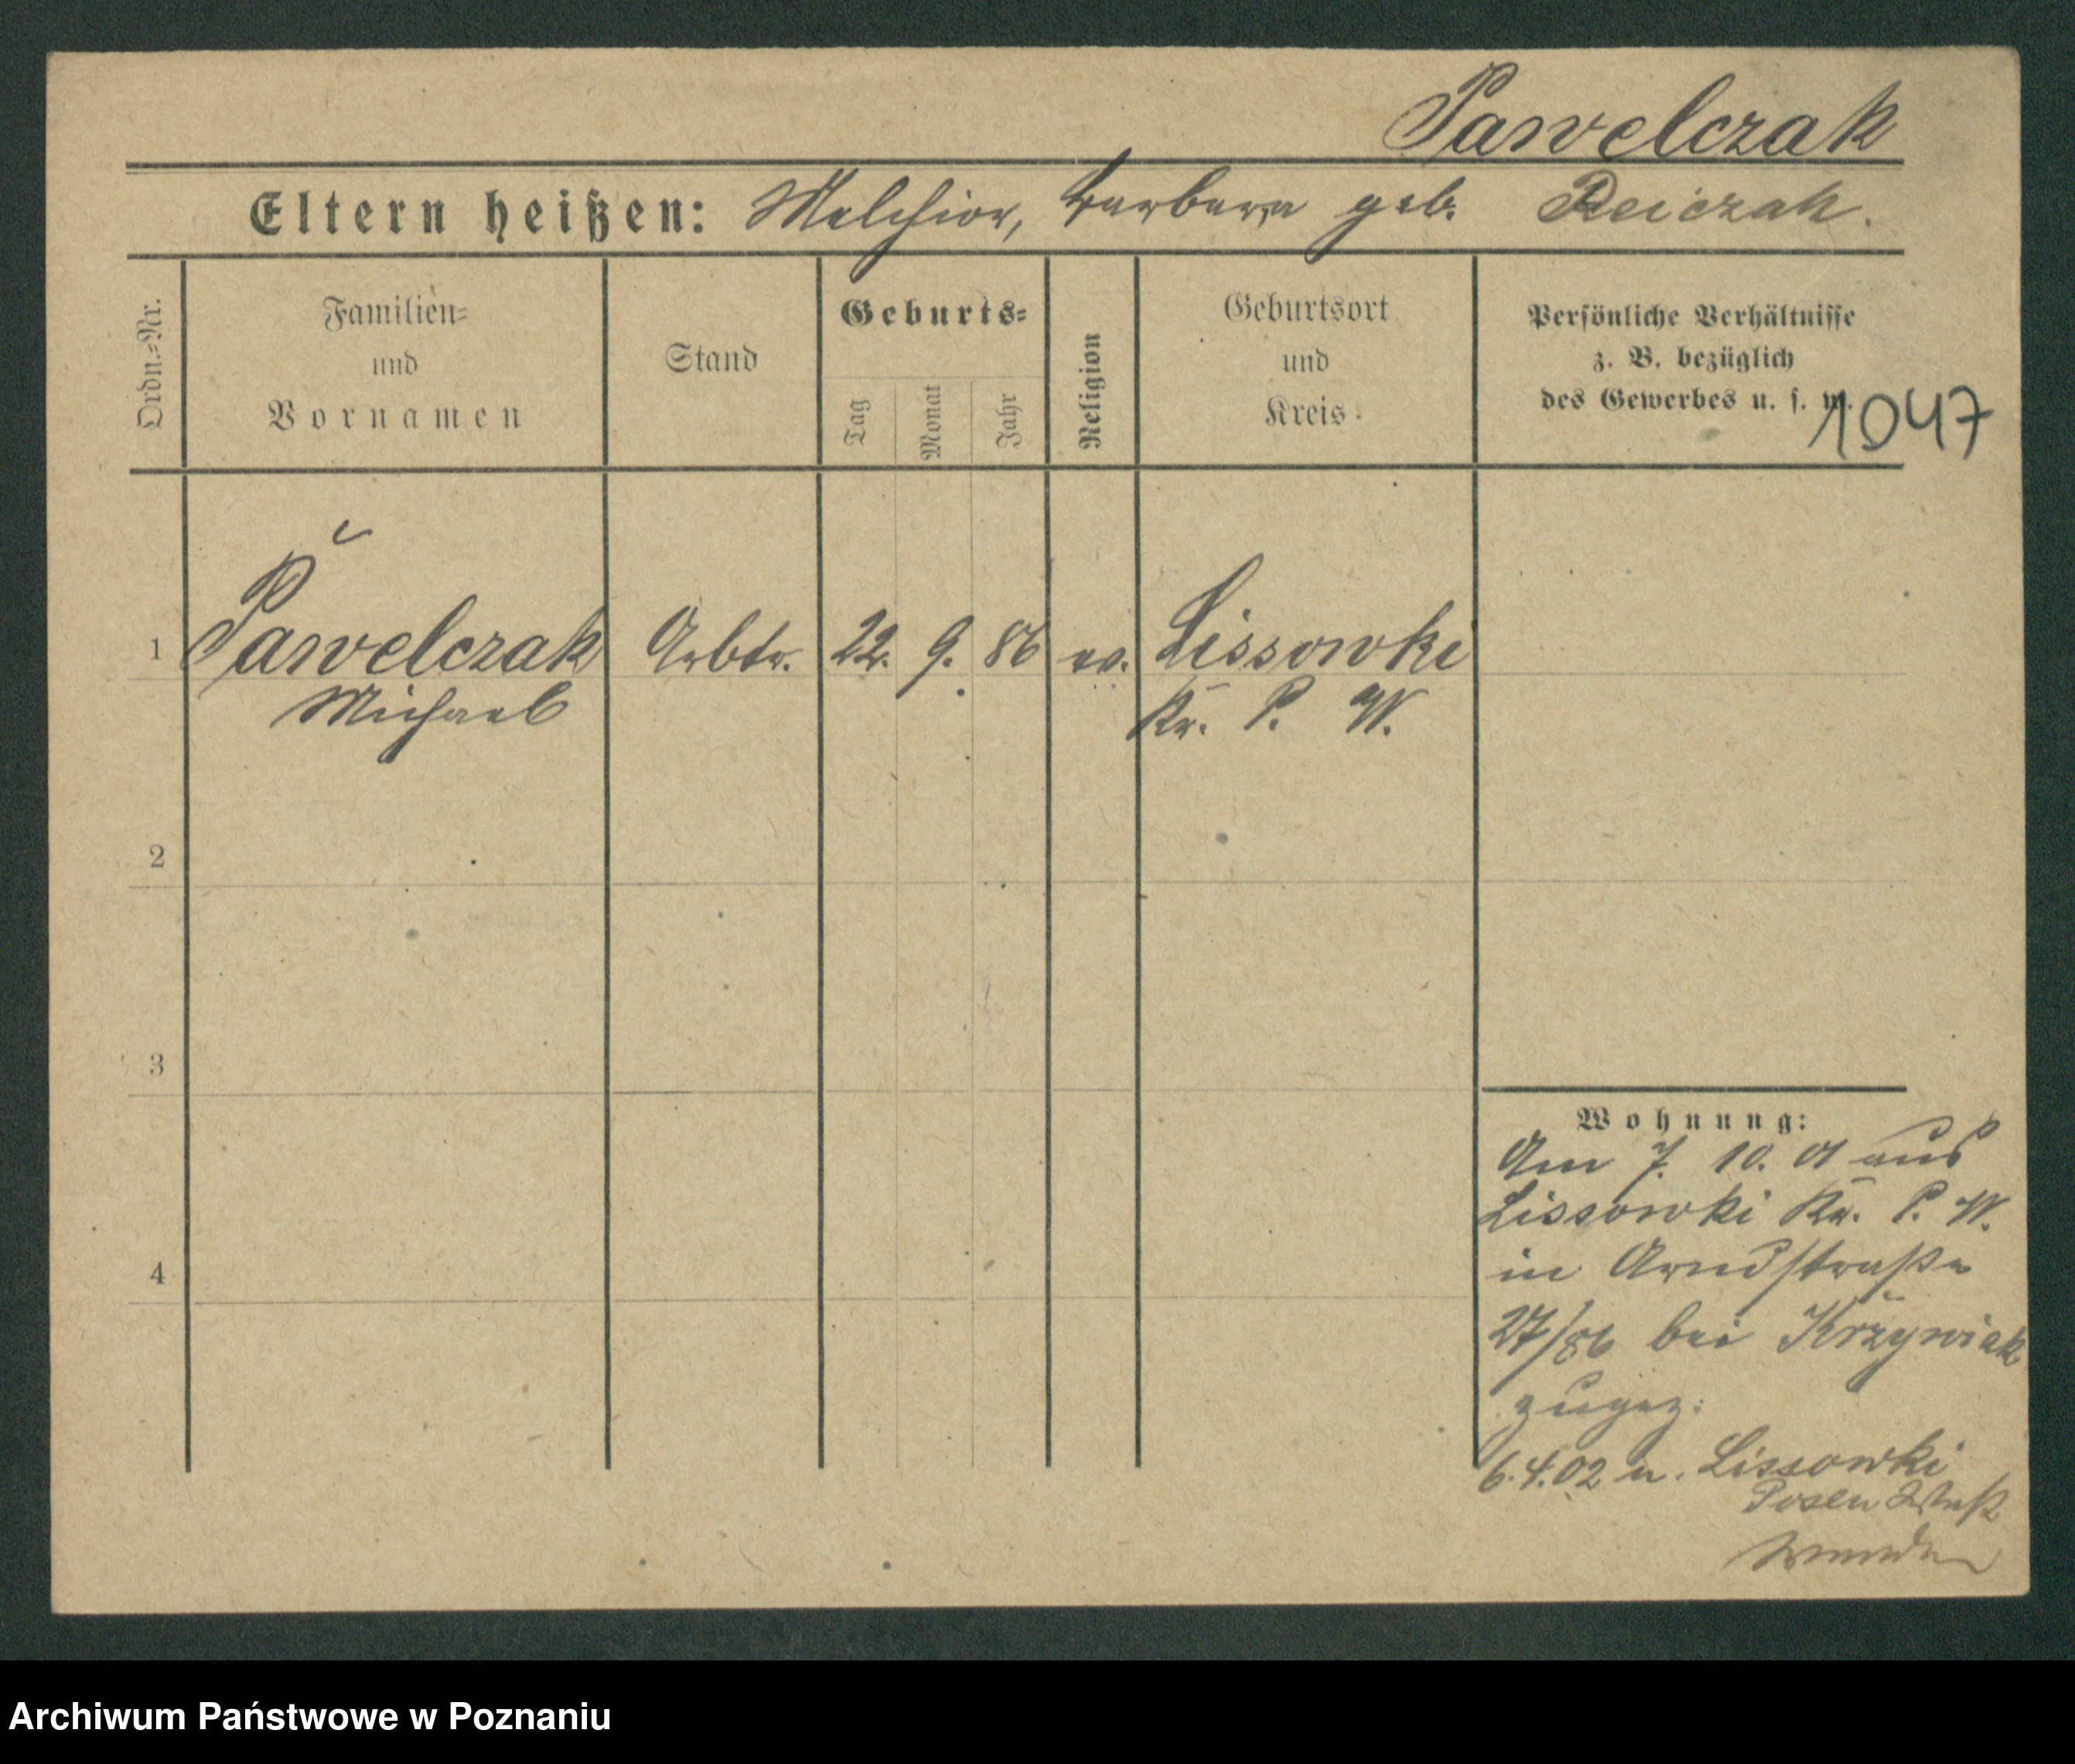 Pawelczak
Eltern heißen: Melchior, Barbara geb. Reiczak.
Ordn.=Nr.
Familien=
und
Vornamen
Stand
Geburts=
Tag
Monat
Jahr
Religion
Geburtsort
und
Kreis
Persönliche Verhältnisse
z. B. bezüglich
des Gewerbes u. s. w.
1047
1 Pawelczak Arbtr. 22. 9. 86 ev. Lissowki
Michael Kr. P. W.
2
3
4
Wohnung:
Am 7. 10. 01 aus
Lissowki Kr. P. W.
in Arndstraße
27/86 bei Krzywiak
zugez.
6.4.02 n. Lissowki
Posen West
Archiwum Państwowe w Poznaniu